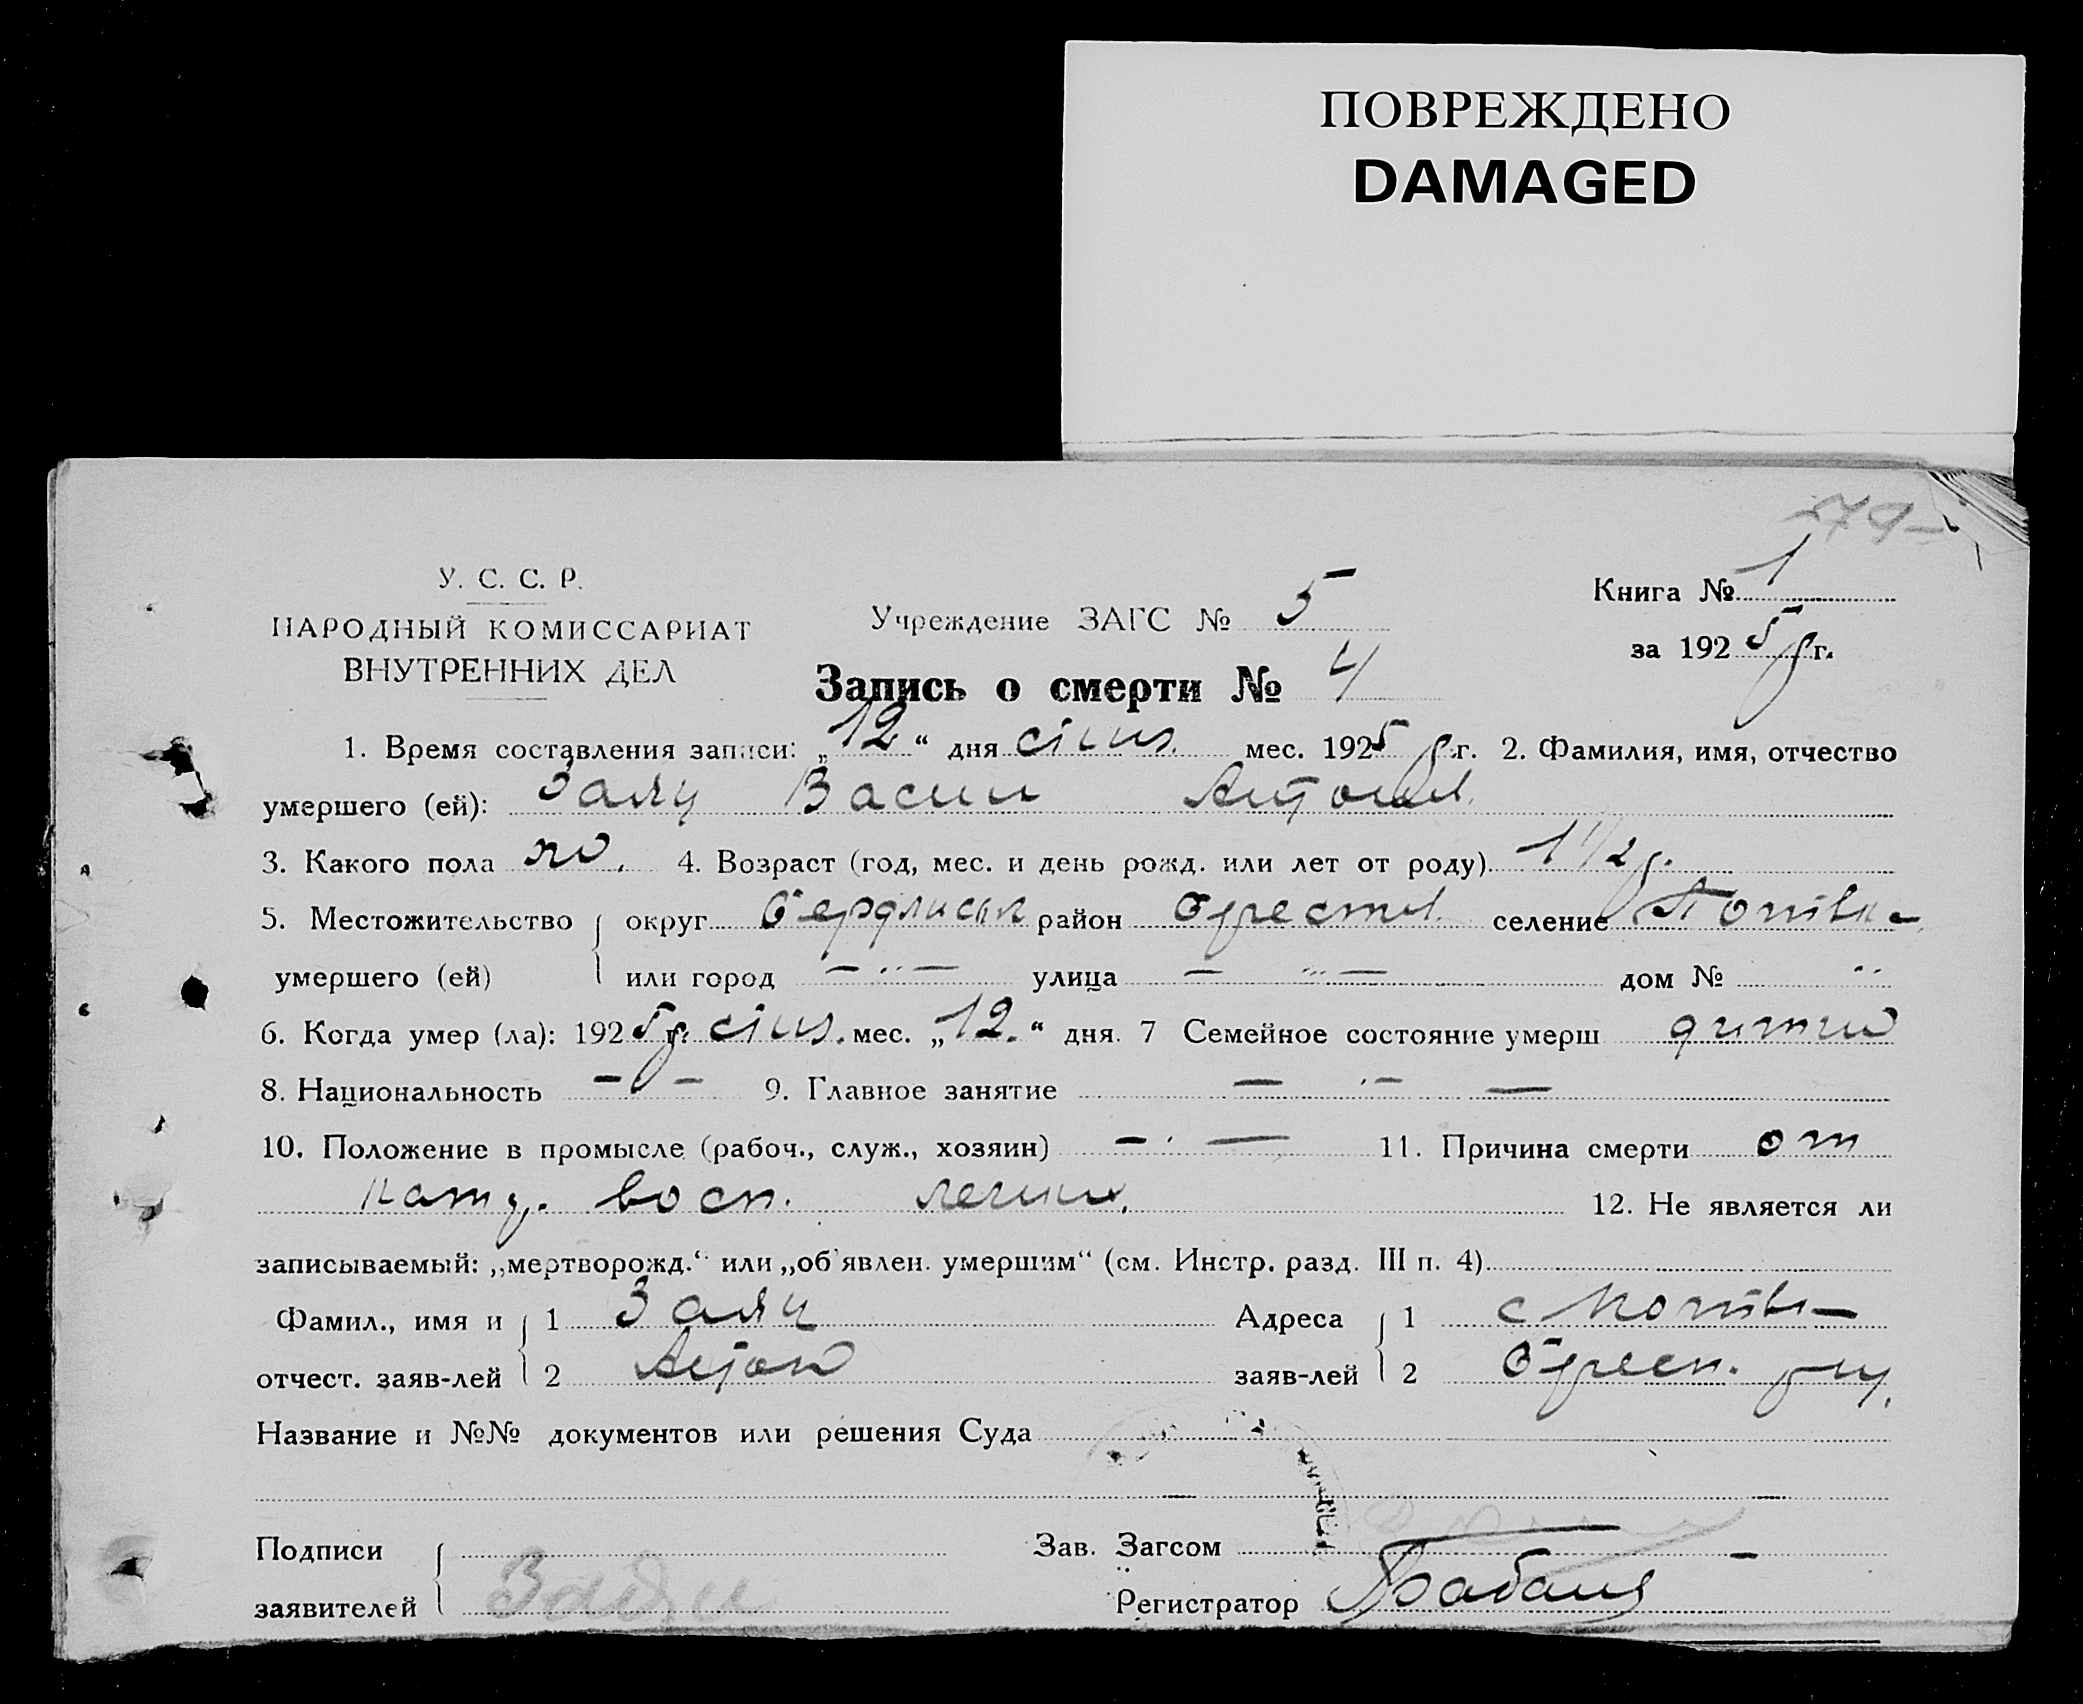 ПОВРЕЖДЕНО
DAMAGED
У. С. С. Р.
НАРОДНЫЙ КОМИССАРИАТ
ВНУТРЕННИХ ДЕЛ
Учреждение ЗАГС № 5
Книга № 1
за 1925 р г.
Запись о смерти № 4
1. Время составления записи: „12“ дня січня мес. 1925 р г. 2. Фамилия, имя, отчество
умершего (ей): Заяц Васил Антонов.
3. Какого пола 4. Возраст (год, мес. и день рожд. или лет от роду) 1 1/2 р.
5. Местожительство округ Бердянськ район селение
умершего (ей) или город — „ — улица — „ — дом № „
6. Когда умер (ла): 1925 р г. січня. мес. „12.“ дня. 7 Семейное состояние умерш дитина
8. Национальность — — 9. Главное занятие — „ —
10. Положение в промысле (рабоч., служ., хозяин) — „ — 11. Причина смерти от
восп. легких. 12. Не является ли
записываемый: „мертворожд.“ или „об'явлен. умершим“ (см. Инстр. разд. III п. 4)
Фамил., имя и 1 Заяц Адреса 1 с
отчест. заяв-лей 2 Антон заяв-лей 2
Название и №№ документов или решения Суда
Подписи Зав. Загсом
заявителей Заяц Регистратор